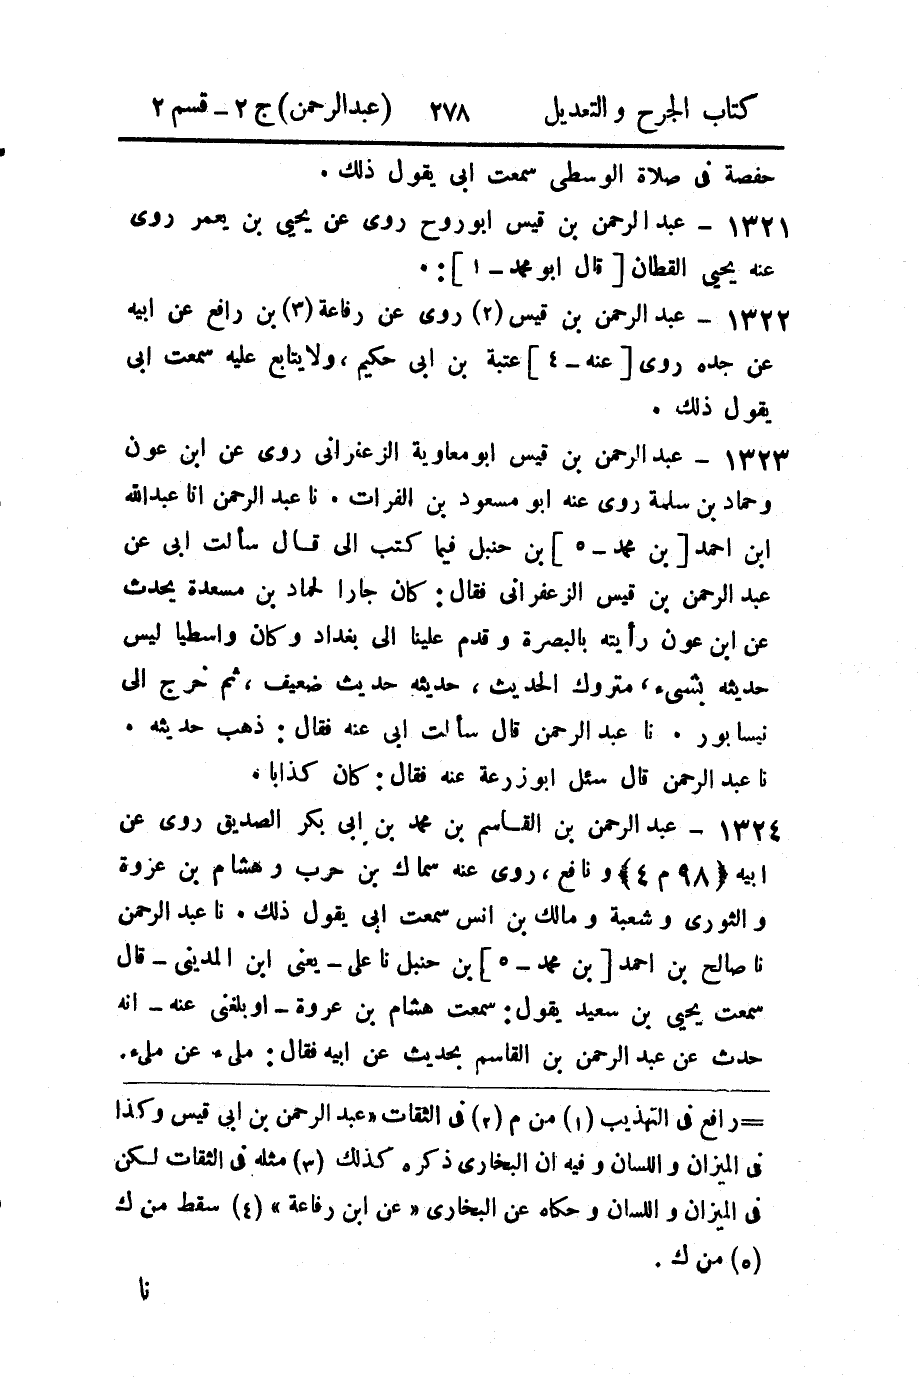 كتاب الجرح و التعديل ٢٧٨ (عبدالرحمن) ج ٢ - قسم ٢
حفصة فى صلاة الوسطى سمعت ابى يقول ذلك .
١٣٢١ - عبد الرحمن بن قيس ابو روح روى عن يحيى بن يعمر روى
عنه يحيى القطان [ قال ابو محمد - ١ ] : .
١٣٢٢ - عبد الرحمن بن قيس (٢) روى عن رفاعة (٣) بن رافع عن ابيه
عن جده روى [ عنه - ٤ ] عتبة بن ابى حكيم ، ولا يتابع عليه سمعت ابى
يقول ذلك .
١٣٢٣ - عبد الرحمن بن قيس ابو معاوية الزعفرانى روى عن ابن عون
وحماد بن سلمة روى عنه ابو مسعود بن الفرات . نا عبد الرحمن انا عبدالله
ابن احمد [ بن محمد - ٥ ] بن حنبل فيما كتب الى قال سألت ابى عن
عبد الرحمن بن قيس الزعفرانى فقال : كان جارا لحماد بن مسعدة يحدث
عن ابن عون رأيته بالبصرة و قدم علينا الى بغداد وكان واسطيا ليس
حديثه بشىء ، متروك الحديث ، حديثه حديث ضعيف ، ثم خرج الى
نيسابور . نا عبد الرحمن قال سألت ابى عنه فقال : ذهب حديثه .
نا عبد الرحمن قال سئل ابو زرعة عنه فقال : كان كذابا .
١٣٢٤ - عبد الرحمن بن القاسم بن محمد بن ابى بكر الصديق روى عن
ابيه ﴿٩٨ م ٤﴾ و نافع ، روى عنه سماك بن حرب و هشام بن عزوة
و الثورى و شعبة و مالك بن انس سمعت ابى يقول ذلك . نا عبد الرحمن
نا صالح بن احمد [ بن محمد - ٥ ] بن حنبل نا على - يعنى ابن المدينى - قال
سمعت يحيى بن سعيد يقول : سمعت هشام بن عروة - او بلغنى عنه - انه
حدث عن عبد الرحمن بن القاسم بحديث عن ابيه فقال : ملىء عن ملىء .
= رافع فى التهذيب (١) من م (٢) فى الثقات « عبد الرحمن بن ابى قيس وكذا
فى الميزان و اللسان و فيه ان البخارى ذكره كذلك (٣) مثله فى الثقات لكن
فى الميزان و اللسان و حكاه عن البخارى « عن ابن رفاعة » (٤) سقط من ك
(٥) من ك .
نا